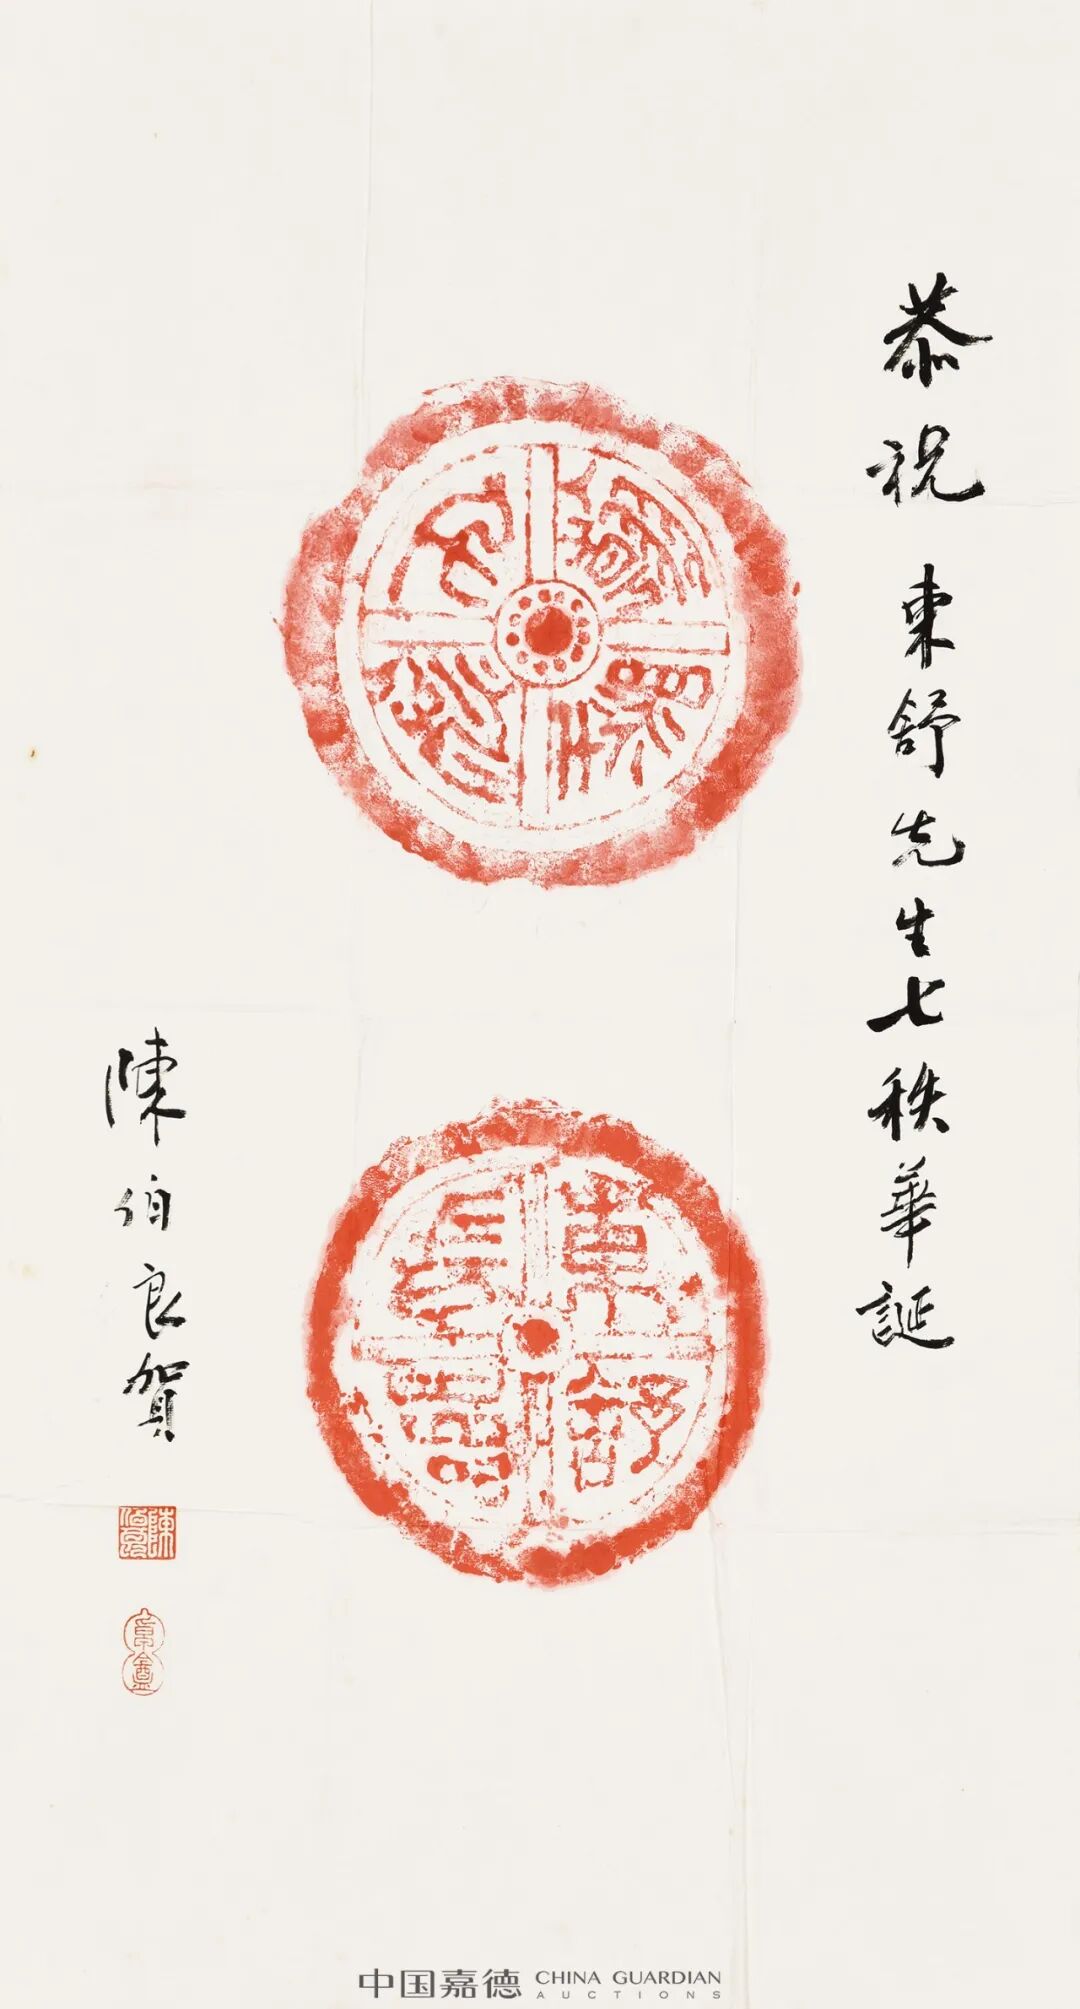 恭祝東舒先生七秩華誕
東舒
長壽
陳伯良賀
陳伯良
中国嘉德 CHINA GUARDIAN
AUCTIONS